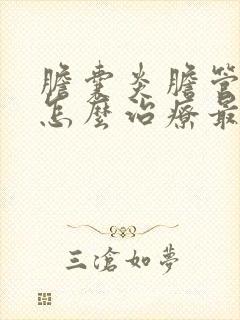 膽囊炎膽管
怎麼治療最
三滄如夢